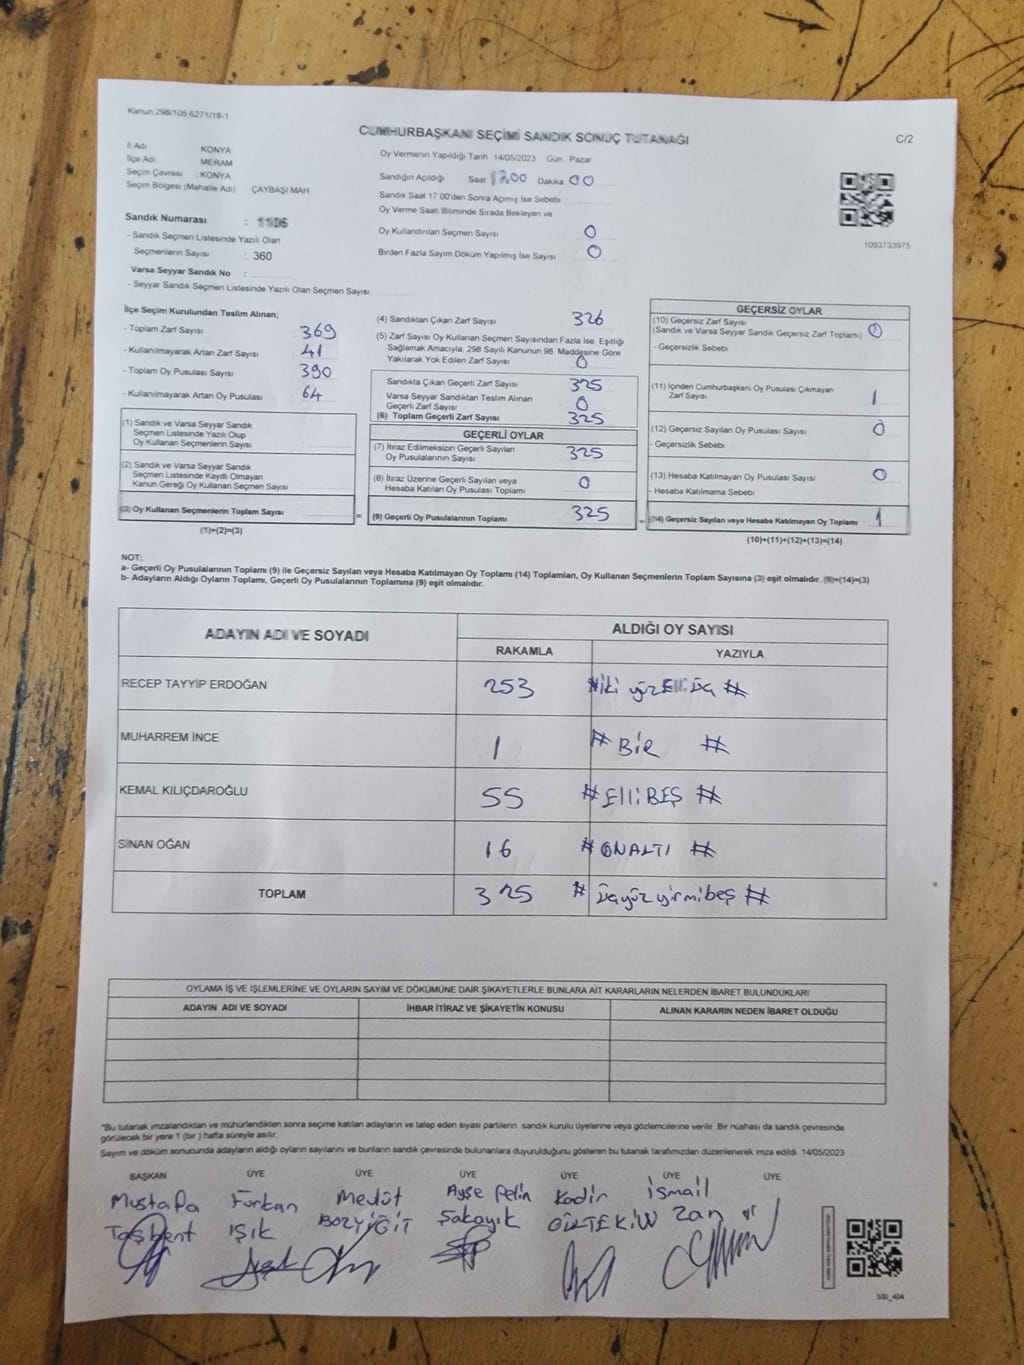 Kanun;298/105;6271/18-1
CUMHURBAŞKANI SEÇİMİ SANDIK SONUÇ TUTANAĞI
C/2
İl Adı KONYA
İlçe Adı MERAM
Seçim Çevresi : KONYA
Seçim Bölgesi (Mahalle Adı) ÇAYBAŞI MAH
Oy Vermenin Yapıldığı Tarih 14/05/2023 Gün Pazar
Sandığın Açıldığı Saat Dakika 00
Sandık Saat 17.00'den Sonra Açımış İse Sebebi
Oy Verme Saati Bitiminde Sırada Bekleyen ve
Oy Kullandırılan Seçmen Sayısı 0
Birden Fazla Sayım Döküm Yapılmış İse Sayısı 0
1093733975
Sandık Numarası : 1106
- Sandık Seçmen Listesinde Yazılı Olan
Seçmenlerin Sayısı : 360
Varsa Seyyar Sandık No :
- Seyyar Sandık Seçmen Listesinde Yazılı Olan Seçmen Sayısı
İlçe Seçim Kurulundan Teslim Alınan;
- Toplam Zarf Sayısı 369
- Kullanılmayarak Artan Zarf Sayısı 41
- Toplam Oy Pusulası Sayısı 390
- Kullanılmayarak Artan Oy Pusulası 64
(1) Sandık ve Varsa Seyyar Sandık
Seçmen Listesinde Yazılı Olup
Oy Kullanan Seçmenlerin Sayısı
(2) Sandık ve Varsa Seyyar Sandık
Seçmen Listesinde Kayıtlı Olmayan
Kanun Gereği Oy Kullanan Seçmen Sayısı
(3) Oy Kullanan Seçmenlerin Toplam Sayısı
(1)+(2)=(3)
(4) Sandıktan Çıkan Zarf Sayısı 326
(5) Zarf Sayısı Oy Kullanan Seçmen Sayısından Fazla İse, Eşitliği
Sağlamak Amacıyla, 298 Sayılı Kanunun 98. Maddesine Göre
Yakılarak Yok Edilen Zarf Sayısı 0
Sandıkta Çıkan Geçerli Zarf Sayısı 325
Varsa Seyyar Sandıktan Teslim Alınan
Geçerli Zarf Sayısı 0
(6) Toplam Geçerli Zarf Sayısı 325
GEÇERLİ OYLAR
(7) İtiraz Edilmeksizin Geçerli Sayılan
Oy Pusulalarının Sayısı 325
(8) İtiraz Üzerine Geçerli Sayılan veya
Hesaba Katılan Oy Pusulası Toplamı 0
= (9) Geçerli Oy Pusulalarının Toplamı 325
GEÇERSİZ OYLAR
(10) Geçersiz Zarf Sayısı
(Sandık ve Varsa Seyyar Sandık Geçersiz Zarf Toplamı) 0
- Geçersizlik Sebebi
(11) İçinden Cumhurbaşkanı Oy Pusulası Çıkmayan
Zarf Sayısı 1
(12) Geçersiz Sayılan Oy Pusulası Sayısı 0
- Geçersizlik Sebebi
(13) Hesaba Katılmayan Oy Pusulası Sayısı 0
- Hesaba Katılmama Sebebi
(14) Geçersiz Sayılan veya Hesaba Katılmayan Oy Toplamı 1
(10)+(11)+(12)+(13)=(14)
NOT:
a- Geçerli Oy Pusulalarının Toplamı (9) ile Geçersiz Sayılan veya Hesaba Katılmayan Oy Toplamı (14) Toplamları, Oy Kullanan Seçmenlerin Toplam Sayısına (3) eşit olmalıdır. (9)+(14)=(3)
b- Adayların Aldığı Oyların Toplamı, Geçerli Oy Pusulalarının Toplamına (9) eşit olmalıdır.
ADAYIN ADI VE SOYADI
ALDIĞI OY SAYISI
RAKAMLA YAZIYLA
RECEP TAYYİP ERDOĞAN 253 #iki yüzElli Üç #
MUHARREM İNCE 1 # BİR #
KEMAL KILIÇDAROĞLU 55 # ElliBEŞ #
SİNAN OĞAN 16 # ONALTI #
TOPLAM 325 # Üçyüzyirmibeş #
OYLAMA İŞ VE İŞLEMLERİNE VE OYLARIN SAYIM VE DÖKÜMÜNE DAİR ŞİKAYETLERLE BUNLARA AİT KARARLARIN NELERDEN İBARET BULUNDUKLARI
ADAYIN ADI VE SOYADI İHBAR İTİRAZ VE ŞİKAYETİN KONUSU ALINAN KARARIN NEDEN İBARET OLDUĞU
*Bu tutanak imzalandıktan ve mühürlendikten sonra seçime katılan adayların ve talep eden siyasi partilerin sandık kurulu üyelerine veya gözlemcilerine verilir. Bir nüshası da sandık çevresinde
görülecek bir yere 1 (bir ) hafta süreyle asılır.
Sayım ve döküm sonucunda adayların aldığı oyların sayılarını ve bunların sandık çevresinde bulunanlara duyurulduğunu gösteren bu tutanak tarafımızdan düzenlenerek imza edildi. 14/05/2023
BAŞKAN ÜYE ÜYE ÜYE ÜYE ÜYE ÜYE
Mustafa Furkan Mevlüt Ayşe Pelin Kadir İsmail
Taşkent IŞIK BOZYİĞİT Şakayık GÜLTEKİN Zan
SSİ_404